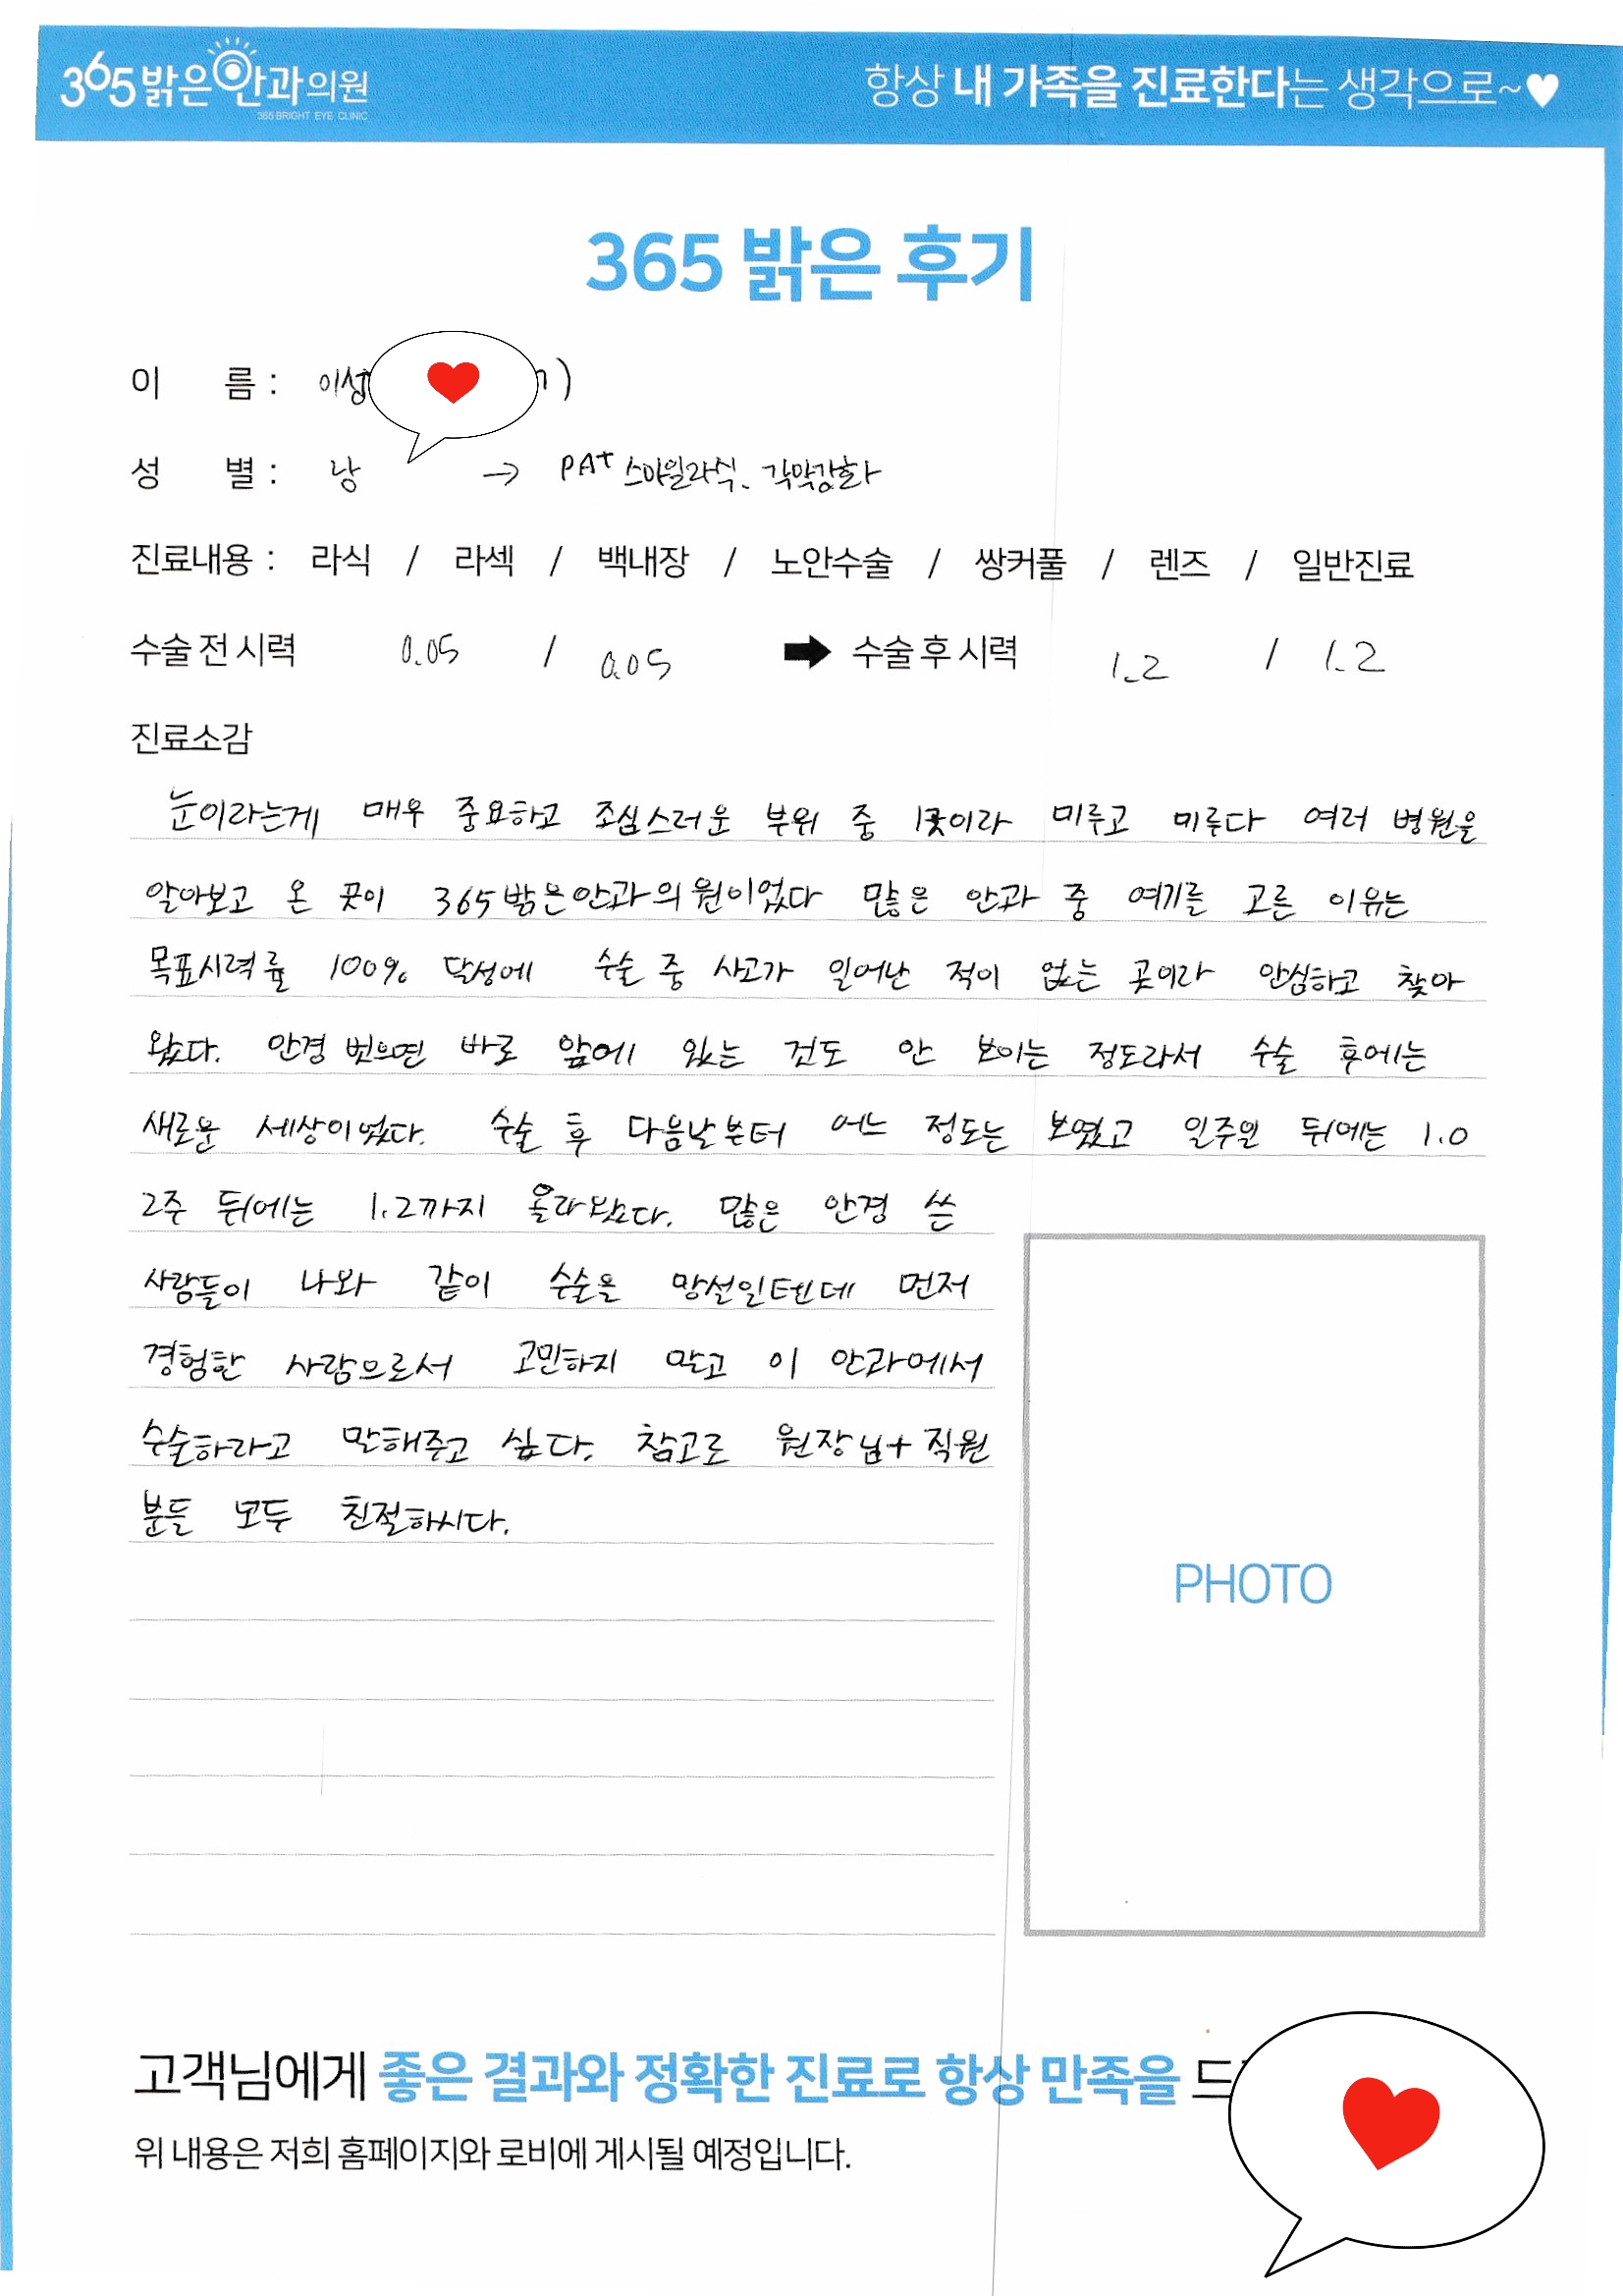 365밝은안과의원
365 BRIGHT EYE CLINIC
항상 내 가족을 진료한다는 생각으로~♥
365 밝은 후기
이 름 : 이성 )
성 별 : 남 → PA+ 스마일라식. 각막강화
진료내용 : 라식 / 라섹 / 백내장 / 노안수술 / 쌍커풀 / 렌즈 / 일반진료
수술 전 시력 0.05 / 0.05 ➡ 수술 후 시력 1.2 / 1.2
진료소감
눈이라는게 매우 중요하고 조심스러운 부위 중 1곳이라 미루고 미루다 여러 병원을
알아보고 온 곳이 365밝은안과의원이었다 많은 안과 중 여기를 고른 이유는
목표시력률 100% 달성에 수술 중 사고가 일어난 적이 없는 곳이라 안심하고 찾아
왔다. 안경 벗으면 바로 앞에 있는 것도 안 보이는 정도라서 수술 후에는
새로운 세상이었다. 수술 후 다음날부터 어느 정도는 보였고 일주일 뒤에는 1.0
2주 뒤에는 1.2까지 올라왔다. 많은 안경 쓴
사람들이 나와 같이 수술을 망설일텐데 먼저
경험한 사람으로서 고민하지 말고 이 안과에서
수술하라고 말해주고 싶다. 참고로 원장님+직원
분들 모두 친절하시다.
PHOTO
고객님에게 좋은 결과와 정확한 진료로 항상 만족을 드
위 내용은 저희 홈페이지와 로비에 게시될 예정입니다.